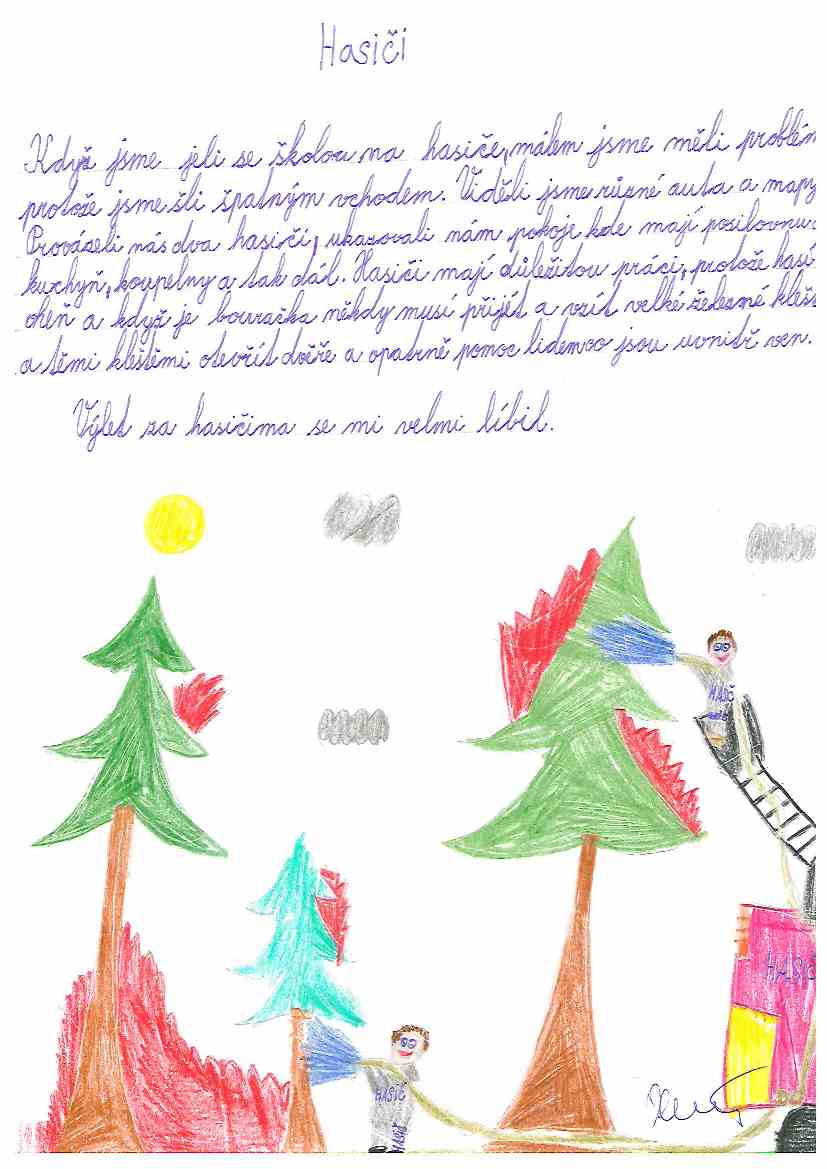 Hasiči
Když jsme jeli se školou na hasiče, málem jsme měli problém
protože jsme šli špatným vchodem. Viděli jsme různé auta a mapy
Provázeli nás dva hasiči, ukazovali nám pokoje kde mají posilovnu
kuchyň, koupelny a tak dál. Hasiči mají důležitou práci, protože hasí
oheň a když je bouračka někdy musí přijít a vzít velké železné kleště
a těmi kleštěmi otevřít dvěře a opatrně pomoc lidem co jsou uvnitř ven.
Výlet za hasičima se mi velmi líbil.
HASIČ
HASIČ
HASIČ
HASIČ